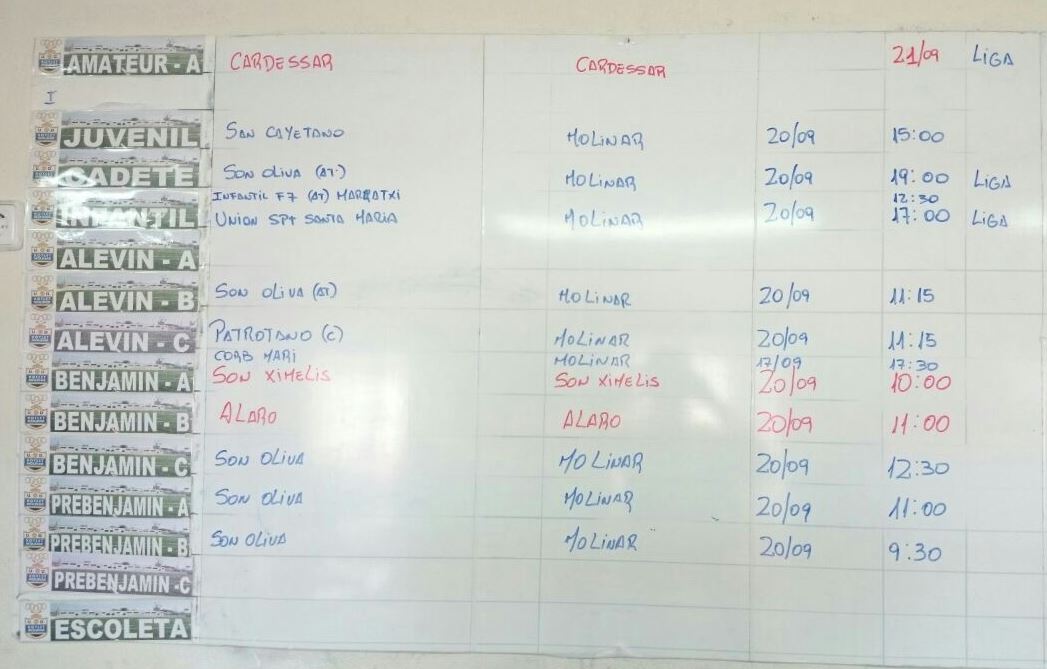 AMATEUR - A CARDESSAR CARDESSAR 21/09 LIGA
I
JUVENIL SAN CAYETANO MOLINAR 20/09 15:00
CADETE SON OLIVA (AT.) MOLINAR 20/09 19:00 LIGA
INFANTIL F7 (AT) MARRATXI 12:30
INFANTIL UNION SPT SANTA MARIA MOLINAR 20/09 17:00 LIGA
ALEVIN - A
ALEVIN - B SON OLIVA (AT) MOLINAR 20/09 11:15
ALEVIN - C PATROTANO (C) MOLINAR 20/09 11:15
CORB MARI MOLINAR 17/09 17:30
BENJAMIN - A SON XIMELIS SON XIMELIS 20/09 10:00
BENJAMIN - B ALARO ALARO 20/09 11:00
BENJAMIN - C SON OLIVA MOLINAR 20/09 12:30
PREBENJAMIN - A SON OLIVA MOLINAR 20/09 11:00
PREBENJAMIN - B SON OLIVA MOLINAR 20/09 9:30
PREBENJAMIN -C
ESCOLETA